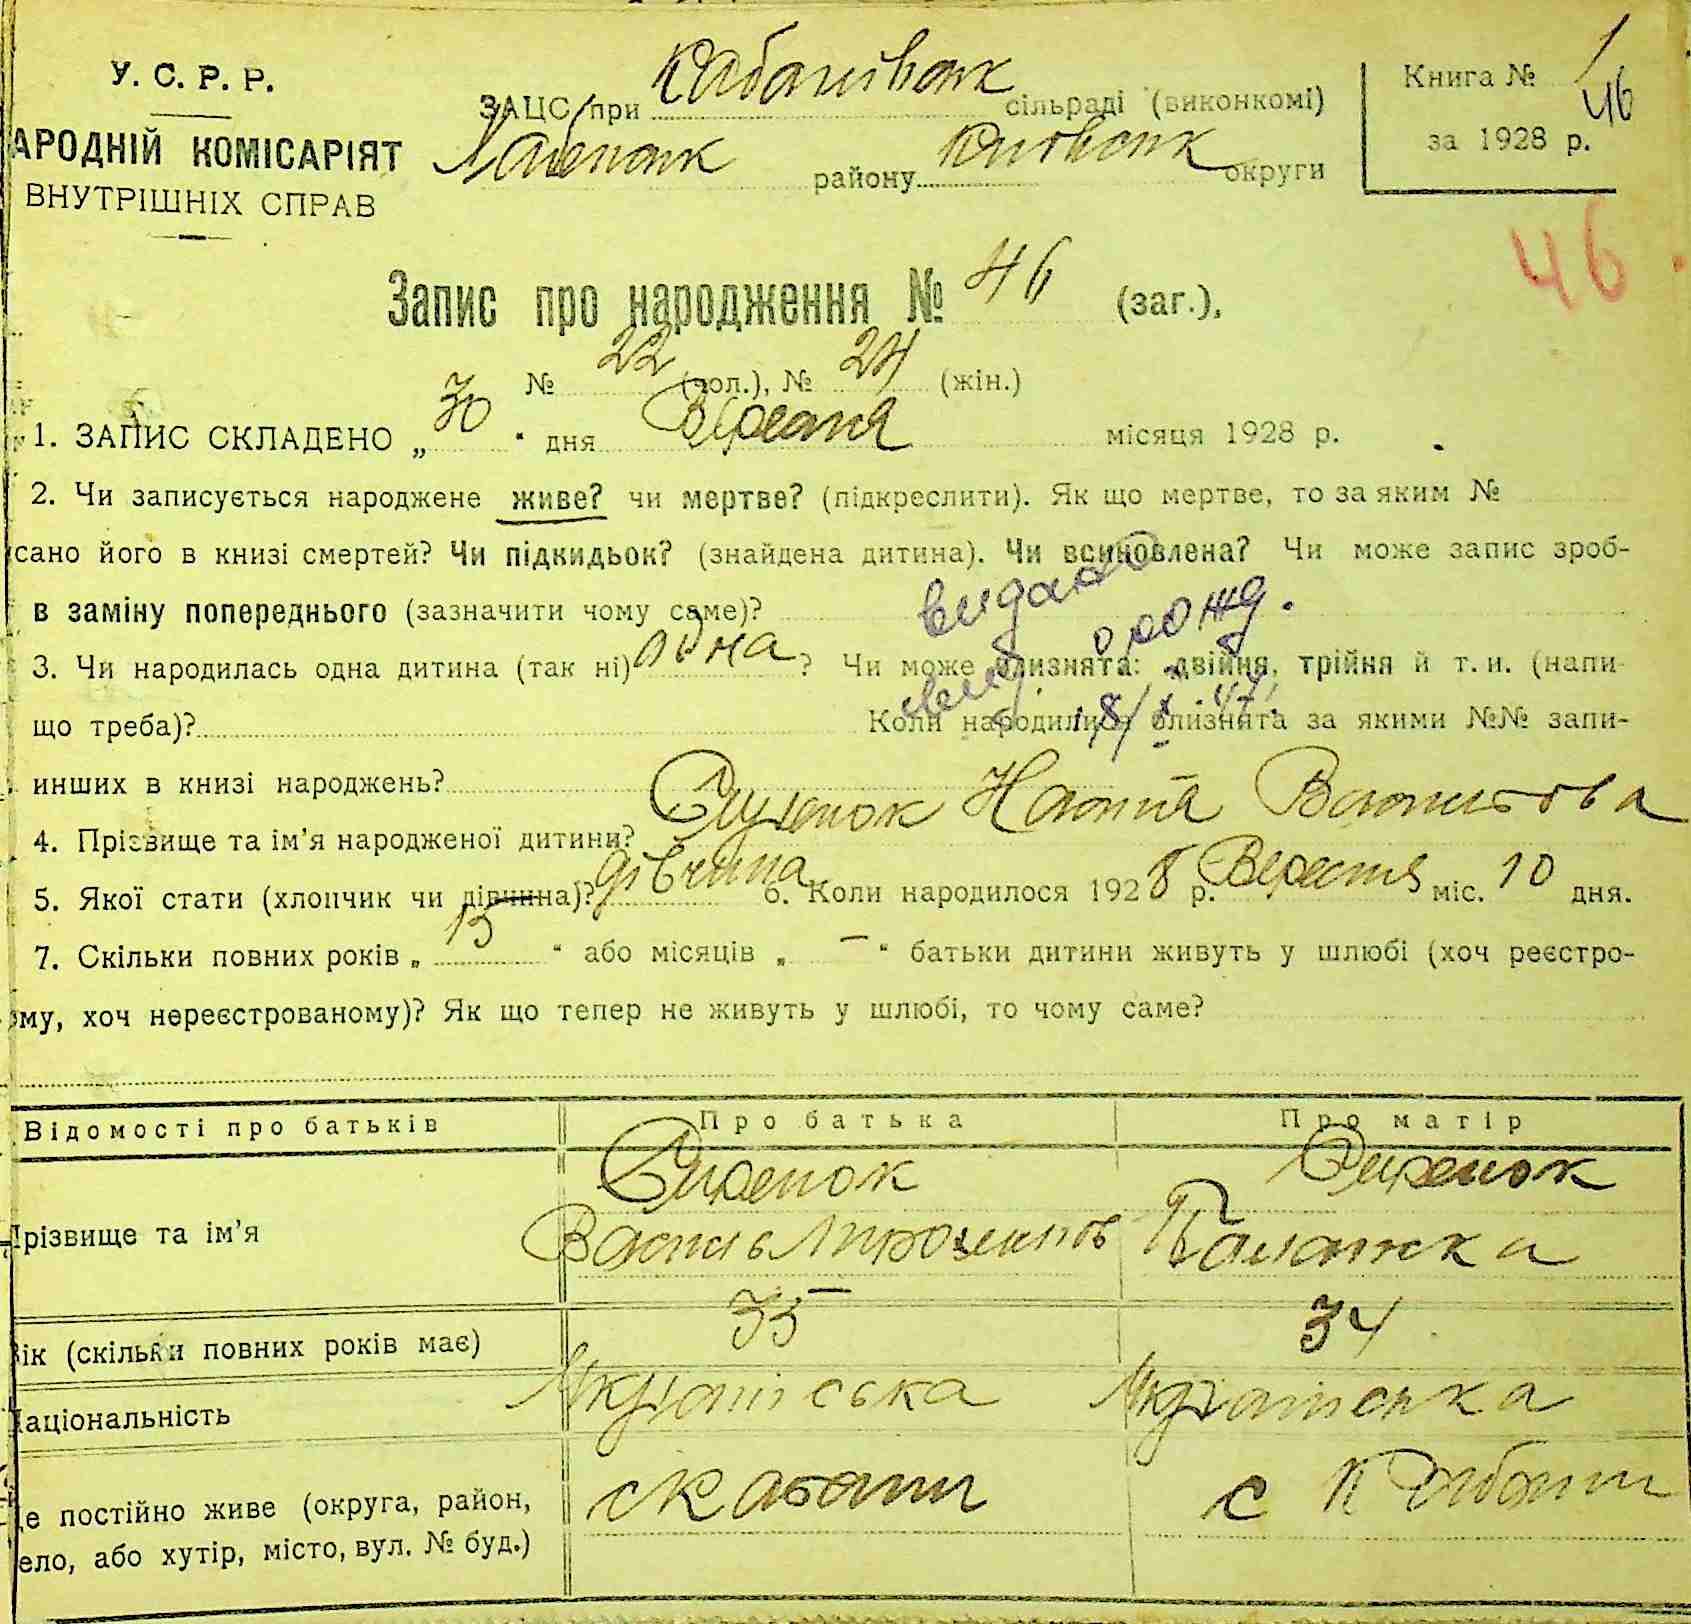 У. С. Р. Р.
АРОДНІЙ КОМІСАРІЯТ
ВНУТРІШНІХ СПРАВ
ЗАЦС при Кабанівськ сільраді (виконкомі)
району Київськ округи
Книга № 1
46
за 1928 р.
46
Запис про народження № 46 (заг.),
№ 22 (чол.), № 24 (жін.)
1. ЗАПИС СКЛАДЕНО „ 30 “ дня Вересня місяця 1928 р.
2. Чи записується народжене живе? чи мертве? (підкреслити). Як що мертве, то за яким №
сано його в книзі смертей? Чи підкидьок? (знайдена дитина). Чи всиновлена? Чи може запис зроб-
в заміну попереднього (зазначити чому саме)?
видано
о рожд.
3. Чи народилась одна дитина (так ні) одна ? Чи може близнята: двійня, трійня й т. и. (напи-
що треба)? Коли народилися близнята за якими №№ запи-
инших в книзі народжень?
4. Прізвище та ім’я народженої дитини? Сиренок Настя Василова
5. Якої стати (хлопчик чи дівчина)? дівчина 6. Коли народилося 1928 р. Вересня міс. 10 дня.
7. Скільки повних років „ 15 “ або місяців „ — “ батьки дитини живуть у шлюбі (хоч реєстро-
ому, хоч нереєстрованому)? Як що тепер не живуть у шлюбі, то чому саме?
Відомості про батьків Про батька Про матір
Прізвище та ім’я Сиренок Сиренок
Василь Палажка
Вік (скільки повних років має) 35 34
Національність Українська Українська
Де постійно живе (округа, район, с Кабани с Кабани
село, або хутір, місто, вул. № буд.)